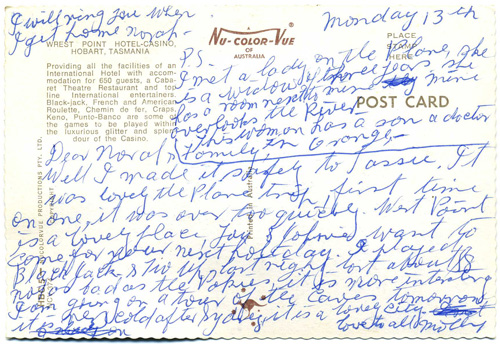 I will ring you when
I get home Norah-
Monday 13th
WREST POINT HOTEL-CASINO,
HOBART, TASMANIA
Providing all the facilities of an
International Hotel with accom-
modation for 650 guests, a Caba-
ret Theatre Restaurant and top
line international entertainers.
Black-jack, French and American
Roulette, Chemin de fer, Craps,
Keno, Punto-Banco are some of
the games to be played within
the luxurious glitter and splen-
dour of the Casino.
NU-COLOR-VUE
OF
AUSTRALIA
PLACE
STAMP
HERE
POST CARD
P.S.
I met a lady on the plane, she
is a widow, three years, she
has a room next to mine
overlooks the River.
This woman has a son a doctor
family, in Orange.
Dear Norah
Well I made it safely to Tassie. It
was lovely the Plane trip, first time
on one, it was over too quickly. West Point
is a lovely place, you & want to
come for your next holiday. I played
Black Jack & two up last night lost about $8
not so bad as the Pokies, it is more interesting
I am going on a tour of the Caves tomorrow,
it is very cold after Sydney, it is a lovely city.
it is
love to all Molly
Printed in Australia
COLORVUE PRODUCTIONS PTY. LTD.